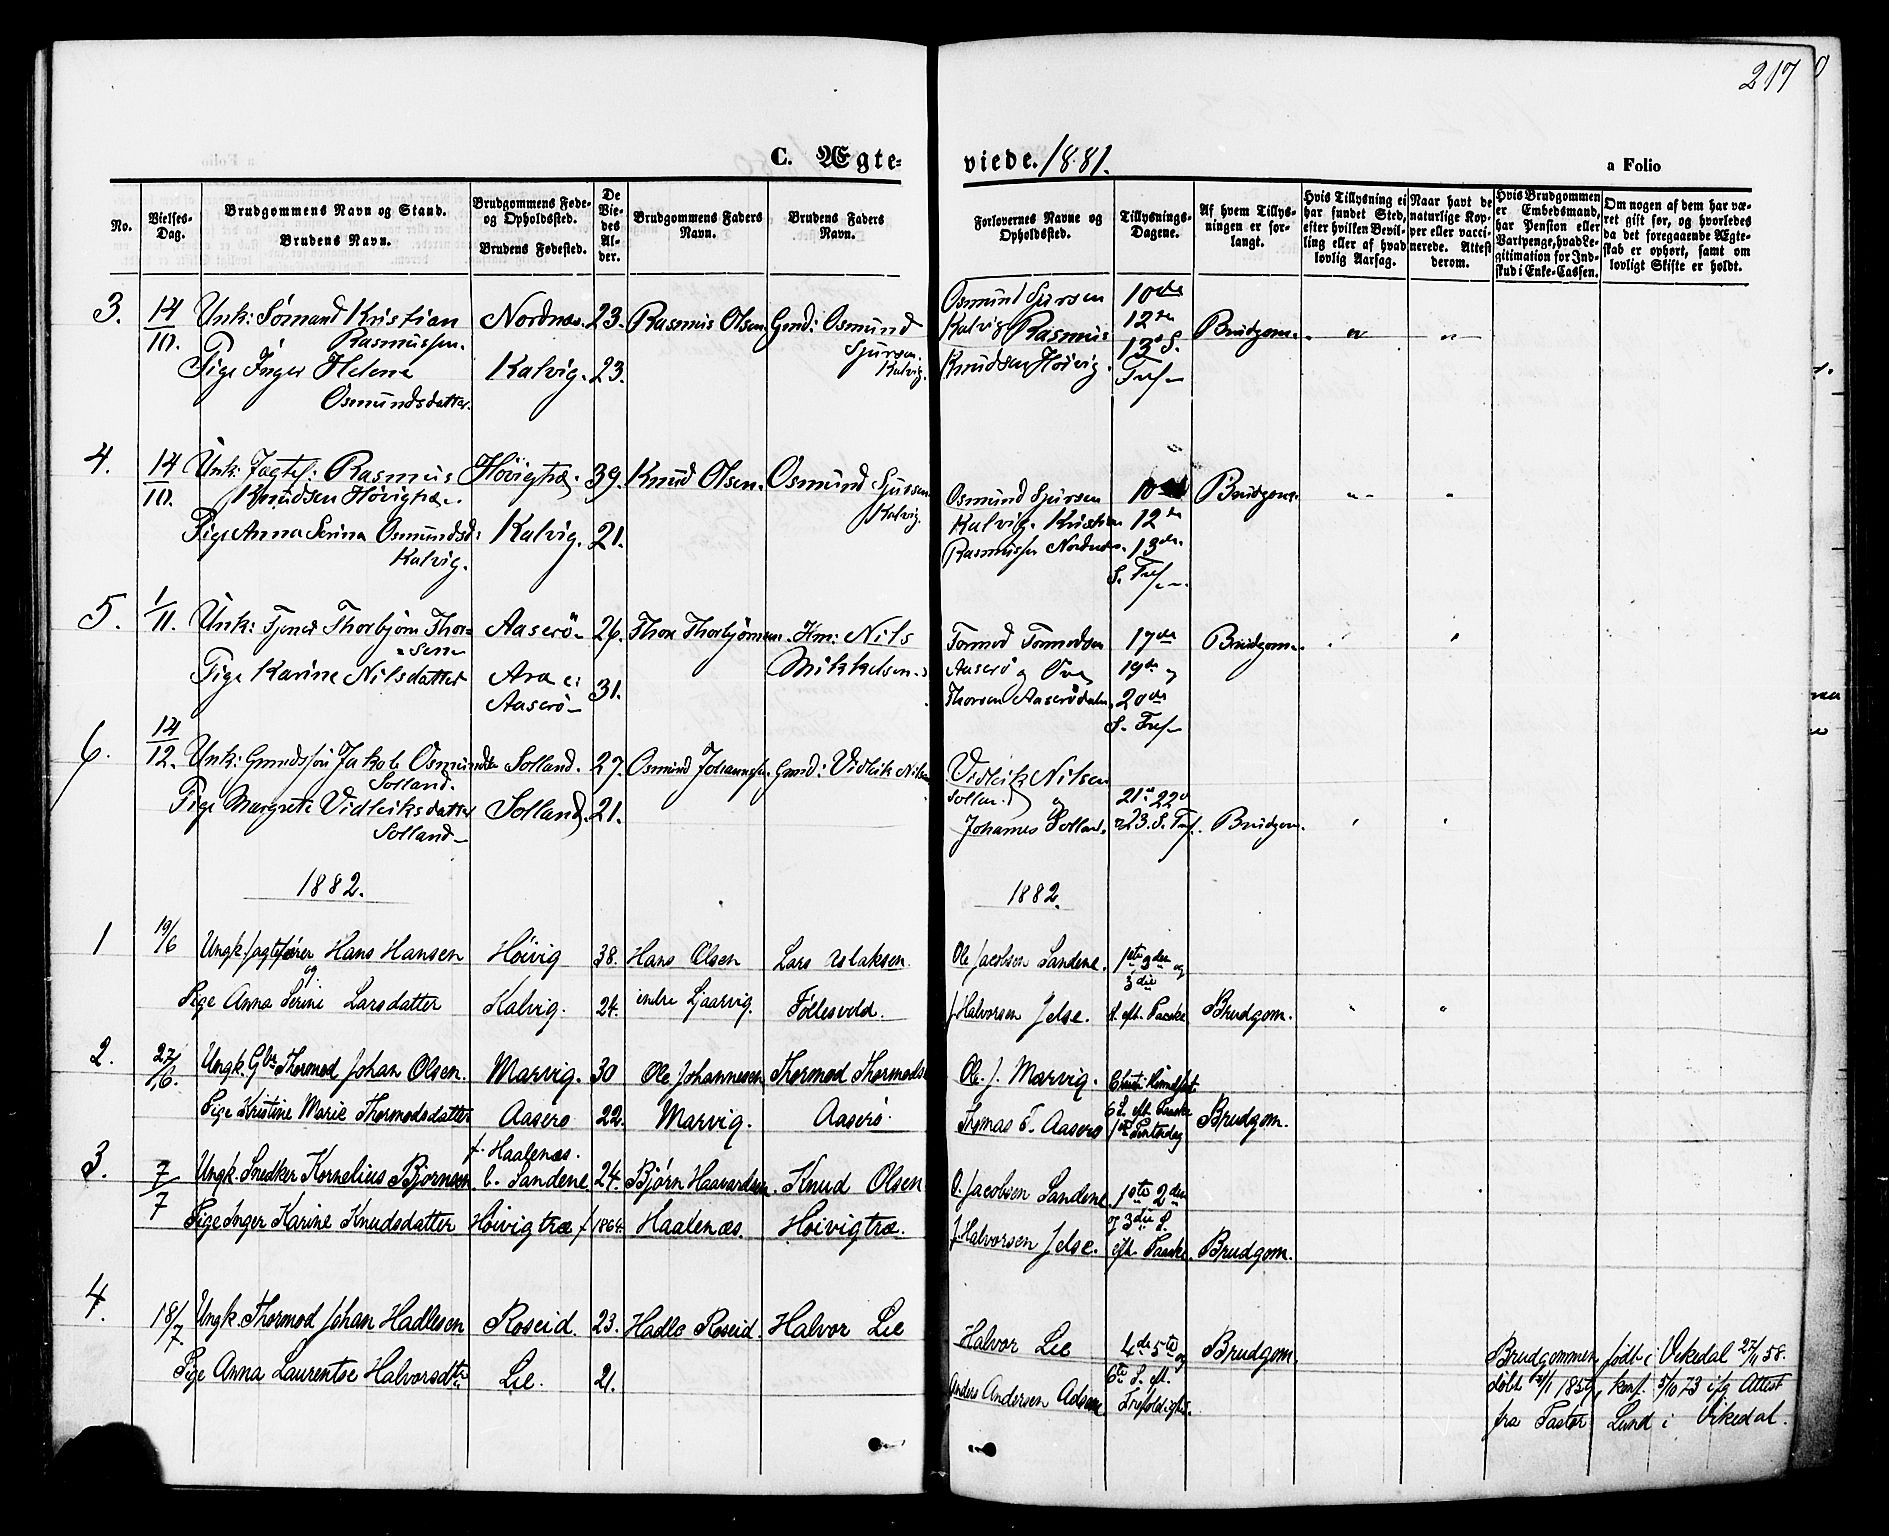 217
C. Ægte-
viede. 1881.
a Folio
No.
Vielses-
Dag.
Brudgommens Navn og Stand.
Brudens Navn.
Brudgommens Føde-
og Opholdssted.
Brudens Fødested.
De
Vie-
des
Al-
der.
Brudgommens Faders
Navn.
Brudens Faders
Navn.
Forlovernes Navne og
Opholdssted.
Tillysnings-
Dagene.
Af hvem Tillys-
ningen er for-
langt.
Hvis Tillysning ei
har fundet Sted,
efter hvilken Bevil-
ling eller af hvad
lovlig Aarsag.
Naar havt de
naturlige Kop-
per eller vacci-
nerede. Attest
derom.
Hvis Brudgommen
er Embedsmand,
har Pension eller
Vartpenge, hvad Le-
gitimation for Ind-
skud i Enke-Cassen.
Om nogen af dem har væ-
ret gift før, og hvorledes
da det foregaaende Ægte-
skab er ophørt, samt om
lovligt Skifte er holdt.
3. 14/10. Unk: Sømand Kristian Rasmussen. Nordnæs. 23. Rasmus Olsen. Gmd: Osmund Sjursen Kalvig.
Pige Inger Helene Osmundsdatter. Kalvig. 23.
Osmund Sjursen
Kalvig Rasmus
Knudsen Høivig.
10de
12te
13de S.
Tref
Brudgom.
4. 14/10. Unk: Jagtef: Rasmus Knudsen Høvigtræ. Höivigtræ. 39. Knud Olsen. Osmund Sjursen Kalvig.
Pige Anna Serina Osmundsd: Kalvig. Kalvig. 21.
Osmund Sjursen
Kalvig. Kristian
Rasmussen Nordnæs.
10de
12te
13de
S. Tref
Brudgom.
5. 1/11. Unk: Tjener Thorbjørn Thor-
sen Aaserö 26. Thore Thorbjørnsen. Hm: Nils
Mikkelsen.
Pige Karine Nilsdatter Ara
Aaserö 31.
Tormod Tormodsen
Aaserö og
Thorsen Aaserödalen.
17de
19de og
20de
S. Tref
Brudgom.
6. 14/12. Unk: Gmdssøn Jakob Osmundsen Solland. Solland. 27. Osmund Johannessen. Gmd: Vidleik Nilsen
Pige Margrete Vidleiksdatter
Solland Solland. 21.
Vidleik Nilsen
Solland og
Johannes Solland.
21de 22de
23. S. Tref.
Brudgom.
1882.
1882.
1 19/6 Ungk. Jagtefører Hans Hansen Høivig 38. Hans Olsen Lars Aslaksen
og
Pige Anna Serine Larsdatter Kalvig. 24. indre Ljaarvig. Føllesvold.
Ole Jacobsen Sandene.
J. Halvorsen Jelse.
1ste 2den og
3die
S. eft. Paaske
Brudgom.
2. 27/6. Ungk. Gbr. Thormod Johan Olsen. Marvig. 30 Ole Johannesen Thormod Thormods
Pige Kristine Marie Thormodsdatter Aaserø 22. Marvig. Aaserø.
Ole. J. Marvig.
Thomas T. Aaserø
Christi Himmelfart
6 S. eft. Paaske
1ste Pintsedag
Brudgom.
3. 7/7 Ungk. Snedker Kornelius Bjørnsen f. Haalenæs.
b. Sandene. 24. Bjørn Haavardsen. Knud Olsen
Pige Inger Karine Knudsdatter Høivigtræ f 1864. Haalenæs. Høivigtræ.
O. Jacobsen Sandene
J. Halvorsen Jelse.
1ste 2den
og 3die S.
eft. Paaske.
Brudgom.
4. 18/7 Ungk. Thormod Johan Hadlesen Roseid. 23. Hadle Roseid. Halvor Lie
Pige Anna Laurentse Halvorsdtr. Lie. 21.
Halvor Lie
Anders Andersen
4de 5te og
6te S. eft.
Trefoldighed.
Brudgom.
Brudgommen født i Vikedal 27/11 58.
døbt 2/1 1859, konf. 5/10 73 ifg Attest
fra Pastor Lund i Vikedal.